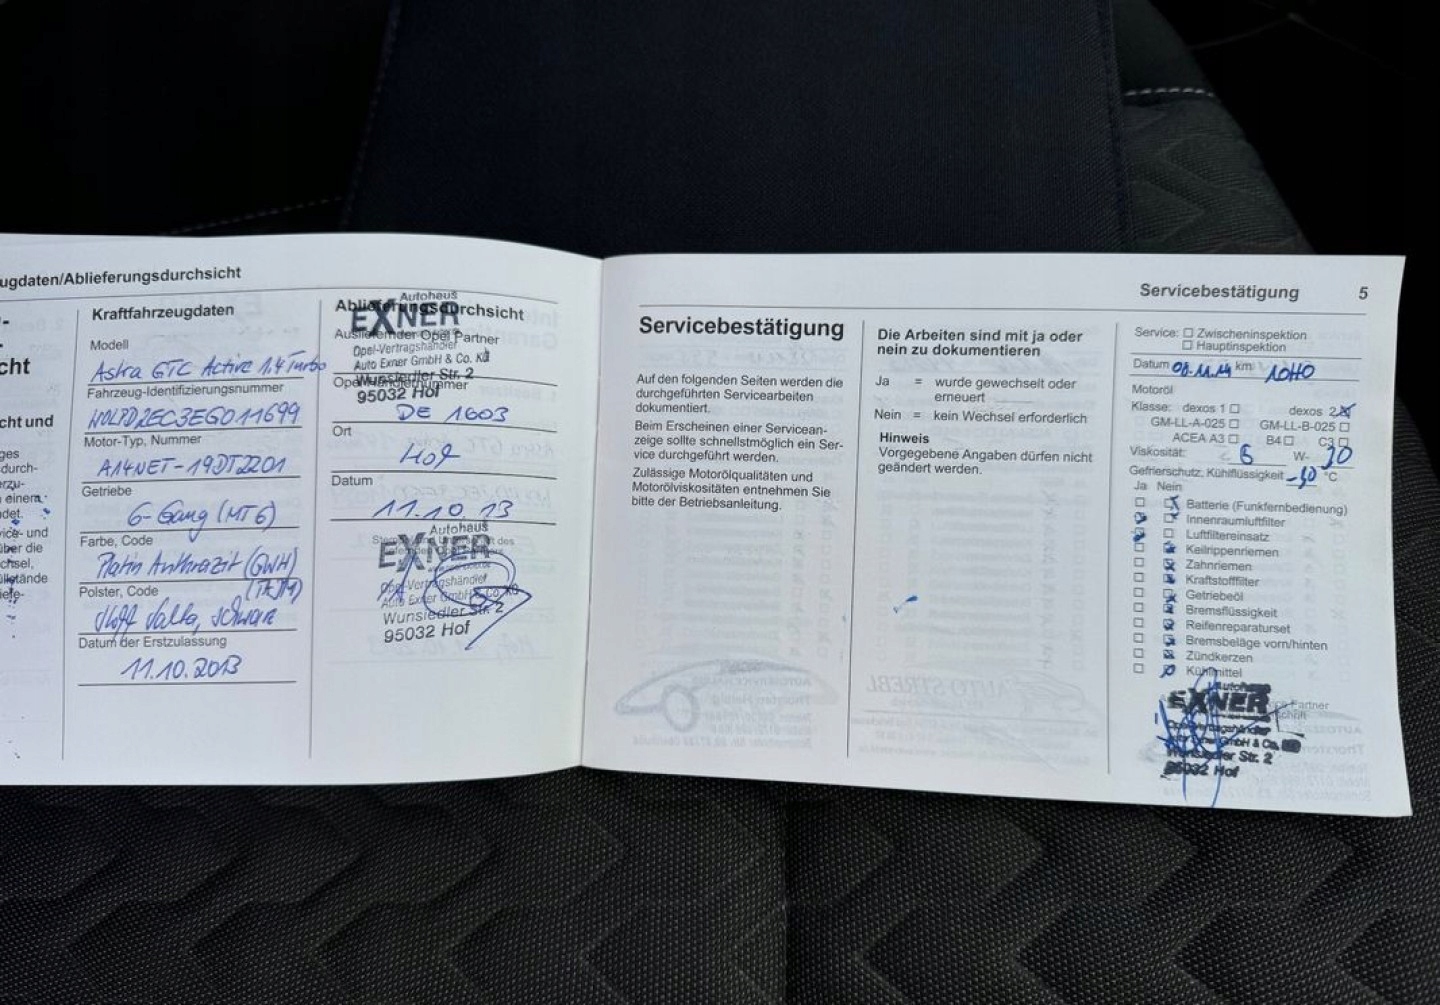 ugdaten/Ablieferungsdurchsicht
cht
cht und
ges
durch-
erzu-
einem
det.
vice- und
über die
chsel,
üllstände
iefe-
Kraftfahrzeugdaten
Modell
Astra GTC Active 1,4 Turbo
Fahrzeug-Identifizierungsnummer
W0LPD2EC3EG011699
Motor-Typ, Nummer
A14NET-19DT2201
Getriebe
6-Gang (MT6)
Farbe, Code
Platin Anthrazit (GWH)
Polster, Code
Stoff Salta, schwarz
Datum der Erstzulassung
11.10.2013
Ablieferungsdurchsicht
Autohaus
EXNER
Ausliefernder Opel Partner
Opel-Vertragshändler
Auto Exner GmbH & Co. KG
Wunsiedler Str. 2
95032 Hof
DE 1603
Ort
Hof
Datum
11.10.13
Autohaus
EXNER
Opel-Vertragshändler
Auto Exner GmbH & Co. KG
Wunsiedler Str. 2
95032 Hof
Servicebestätigung 5
Servicebestätigung
Auf den folgenden Seiten werden die
durchgeführten Servicearbeiten
dokumentiert.
Beim Erscheinen einer Servicean-
zeige sollte schnellstmöglich ein Ser-
vice durchgeführt werden.
Zulässige Motorölqualitäten und
Motorölviskositäten entnehmen Sie
bitte der Betriebsanleitung.
Die Arbeiten sind mit ja oder
nein zu dokumentieren
Ja = wurde gewechselt oder
erneuert
Nein = kein Wechsel erforderlich
Hinweis
Vorgegebene Angaben dürfen nicht
geändert werden.
Service: Zwischeninspektion
Hauptinspektion
Datum 08.11.14 km
Motoröl
Klasse: dexos 1 dexos 2
GM-LL-A-025 GM-LL-B-025
ACEA A3 B4 C3
Viskosität: W- 30
Gefrierschutz, Kühlflüssigkeit °C
Ja Nein
Batterie (Funkfernbedienung)
Innenraumluftfilter
Luftfiltereinsatz
Keilrippenriemen
Zahnriemen
Kraftstofffilter
Getriebeöl
Bremsflüssigkeit
Reifenreparaturset
Bremsbeläge vorn/hinten
Zündkerzen
Kühlmittel
Autohaus
EXNER
Opel-Vertragshändler
Auto Exner GmbH & Co.
Wunsiedler Str. 2
95032 Hof